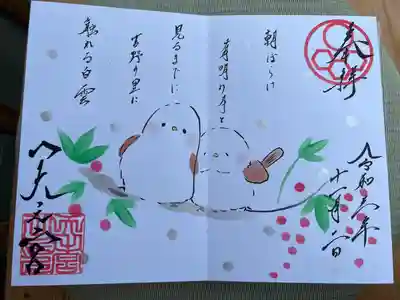 奉拝
朝ぼらけ
有明の月と
見るまでに
吉野の里に
触れる白雲
令和六年
十一月二日